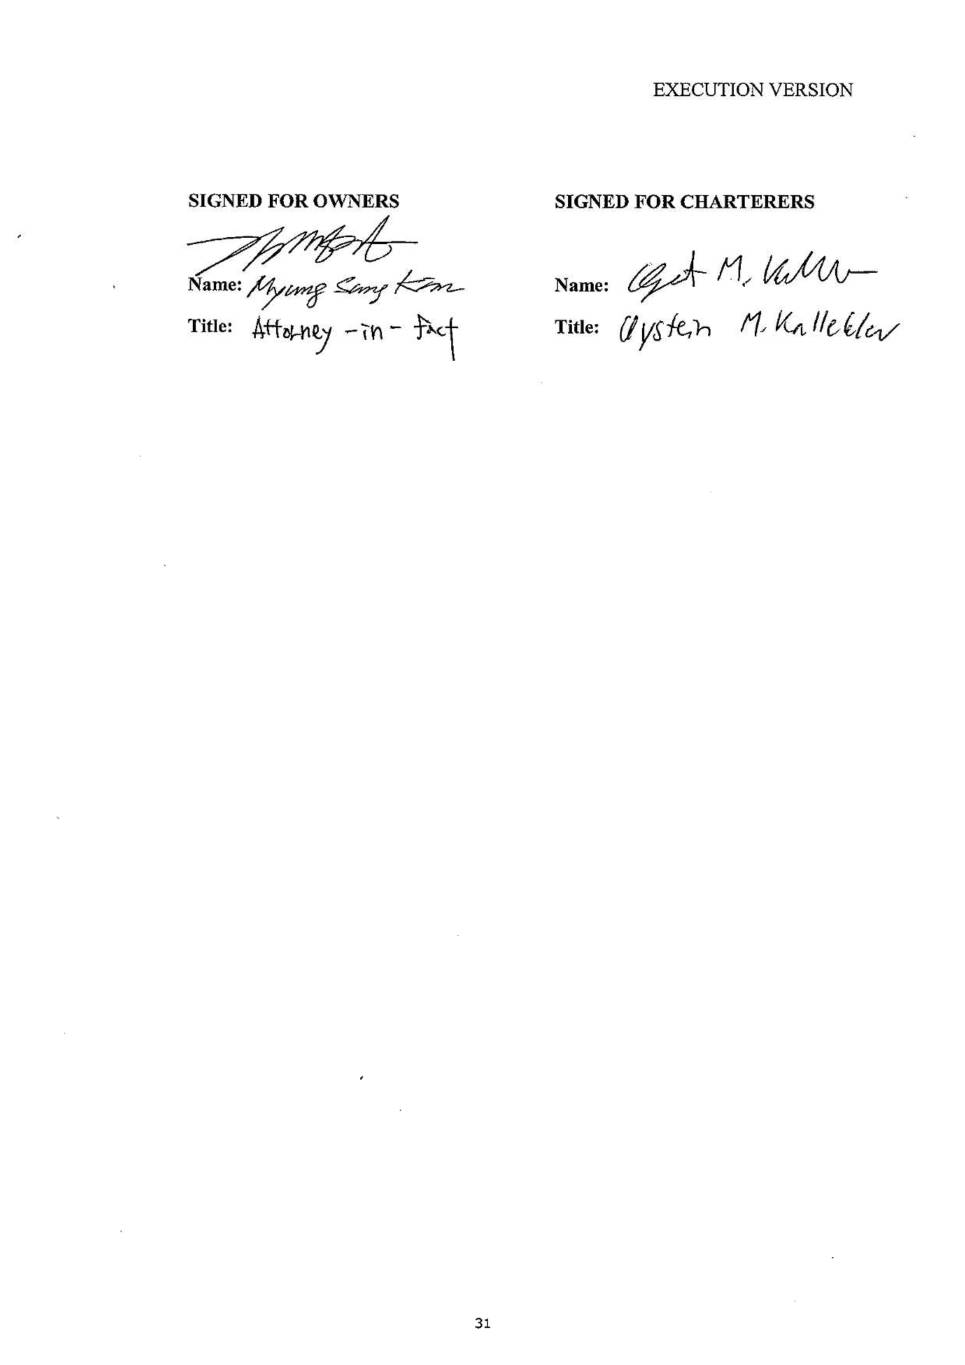 EXECUTION VERSION
SIGNED FOR OWNERS
Name: Myung Sang Kim
Title: Attorney-in-fact
SIGNED FOR CHARTERERS
Name: M.
Title: Øystein M. Kalleklev
31